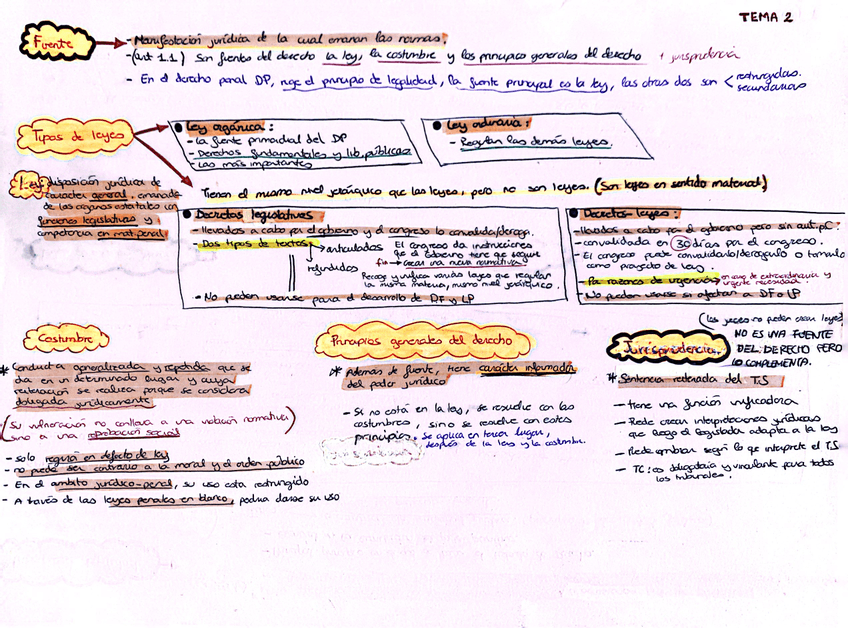 TEMA 2
Fuente
- Manifestación jurídica de la cual emanan las normas.
- (art 1.1) Son fuentes del derecho la ley, la costumbre y los principios generales del derecho + jurisprudencia
- En el derecho penal DP, rige el principio de legalidad, la fuente principal es la ley, las otras dos son < restringidas.
secundarias
Tipos de leyes
● Ley orgánica:
- La fuente primordial del DP
- Derechos fundamentales y lib. públicas
- Las más importantes
● Ley ordinaria:
- Regulan las demás leyes.
Ley disposición jurídica de
carácter general, emanada
de los órganos estatales con
funciones legislativas y
competencia en mat. penal
Tienen el mismo nivel jerárquico que las leyes, pero no son leyes. (Son leyes en sentido material)
● Decretos legislativos
- llevados a cabo por el gobierno y el congreso lo convalida/deroga.
- Dos tipos de textos
articulados El congreso da instrucciones
que el Gobierno tiene que seguir
fin → crear una nueva normativa
refundidos
Recoge y unifica varias leyes que regulan
la misma materia, mismo nivel jerárquico.
- No pueden usarse para el desarrollo de DF y LP
● Decretos-leyes:
- llevados a cabo por el gobierno pero sin aut. pC.
- convalidada en 30 días por el congreso.
- El congreso puede convalidarlo/derogarlo o tomarlo
como proyecto de ley.
- Por razones de urgencias en caso de extraordinaria y
urgente necesidad.
- No pueden usarse si afectan a DF o LP
Costumbre
* Conducta generalizada y repetida que se
da en un determinado lugar y cuya
se realiza porque se considera
obligada jurídicamente
(Su vulneración no conlleva a una violación normativa
sino a una reprobación social)
- solo regirá en defecto de ley
- no puede ser contraria a la moral y el orden público
- En el ámbito jurídico-penal, su uso está restringido
- A través de las leyes penales en blanco, podría darse su uso
Principios generales del derecho
* Además de fuente, tiene carácter informador
del poder jurídico
- Si no está en la ley, se resuelve con las
costumbres, sino se resuelve con estos
principios. se aplica en tercer lugar,
después de la ley y la costumbre.
Jurisprudencia
(Los jueces no pueden crear leyes)
NO ES UNA FUENTE
DEL DERECHO PERO
LO COMPLEMENTA.
* Sentencia reiterada del T.S
- tiene una función unificadora
- Puede crear interpretaciones jurídicas
que luego el legislador adapta a la ley
- Puede cambiar según lo que interprete el T.S
- TC: es obligatoria y vinculante para todos
los tribunales.